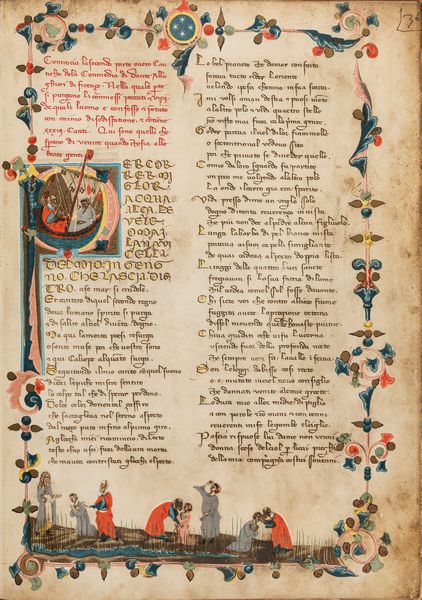 Comincia la seconda parte overo Can
ticha dela Commedia di Dante Ala
ghieri di firençe. Nella quale par
si purgano li commessi peccati & viçii
de quali luomo e confesso & pentuto
con animo di sodisfatione. & contiene
XXXIII. Canti. Qui sono quelli che
sperano di venire quando che sia alle
beate genti.
PER COR
RER MI
GLOR
ACQUA
ALÇA LE
VELE
OMAI
LA NAVI
CELLA
DEL MIO INGENG
NO. CHE LASCIA DIE
TRO. a se mar si crudele.
E cantero di quel secondo regno
dove lumano spirito si purga
& di salire al ciel diventa degno.
Ma qui la morta poesi resurga
o sante muse poi che vostro sono
& qui Caliope alquanto surga.
Seguitando il mio canto co quel suono
di cui le piche misere sentiro
lo colpo tal che disperar perdono.
Dolce color doriental çaffiro
che saccoglieva nel sereno aspecto
dal meço puro infino al primo giro.
A gliocchi miei ricomincio dilecto
tosto chio usci fuor dellaura morta
che mavea contristati gliocchi el pecto.
Lo bel pianeta che damar conforta
faceva tucto rider loriente
velando i pesci cherano in sua scorta.
Io mi volsi a man destra & puosi mente
alaltro polo & vidi quattro stelle
non viste mai fuor cala prima gente.
Goder pareva il ciel di lor fiammelle
o septentrional vedovo sito
poi che privato se di veder quelle.
Comio da loro sguardo fui partito
un poco me volgendo alaltro polo
la onde il carro gia era sparito.
Vidi presso di me un veglo solo
degno di tanta reverença in vista
che piu non dee a padre alcun figluolo.
Lunga la barba & di pel bianco mista
portava a suoi capelli simigliante
de quai cadeva al pecto doppia lista.
Li raggi delle quattro luci sancte
fregiavan si la sua faccia di lume
chil vedea come l sol fosse davante.
Chi siete voi che contro al cieco fiume
fuggita avete la pregione ecterna
dissel movendo quelle honeste piume.
Chi va guidati o chi vi fu lucerna
uscendo fuor della profonda nocte
che sempre nera fa la valle inferna.
Son le leggi dabisso cosi rocte
o e mutato in ciel novo consiglio
che dannati venite alemie grocte.
Lo duca mio allor mi die di piglio
& con parole & con mani & con cenni
reverenti mi fe le gambe el ciglio.
Poscia rispuose lui da me non venni
donna scese del ciel per li cui prieghi
della mia compagnia costui sovenni.